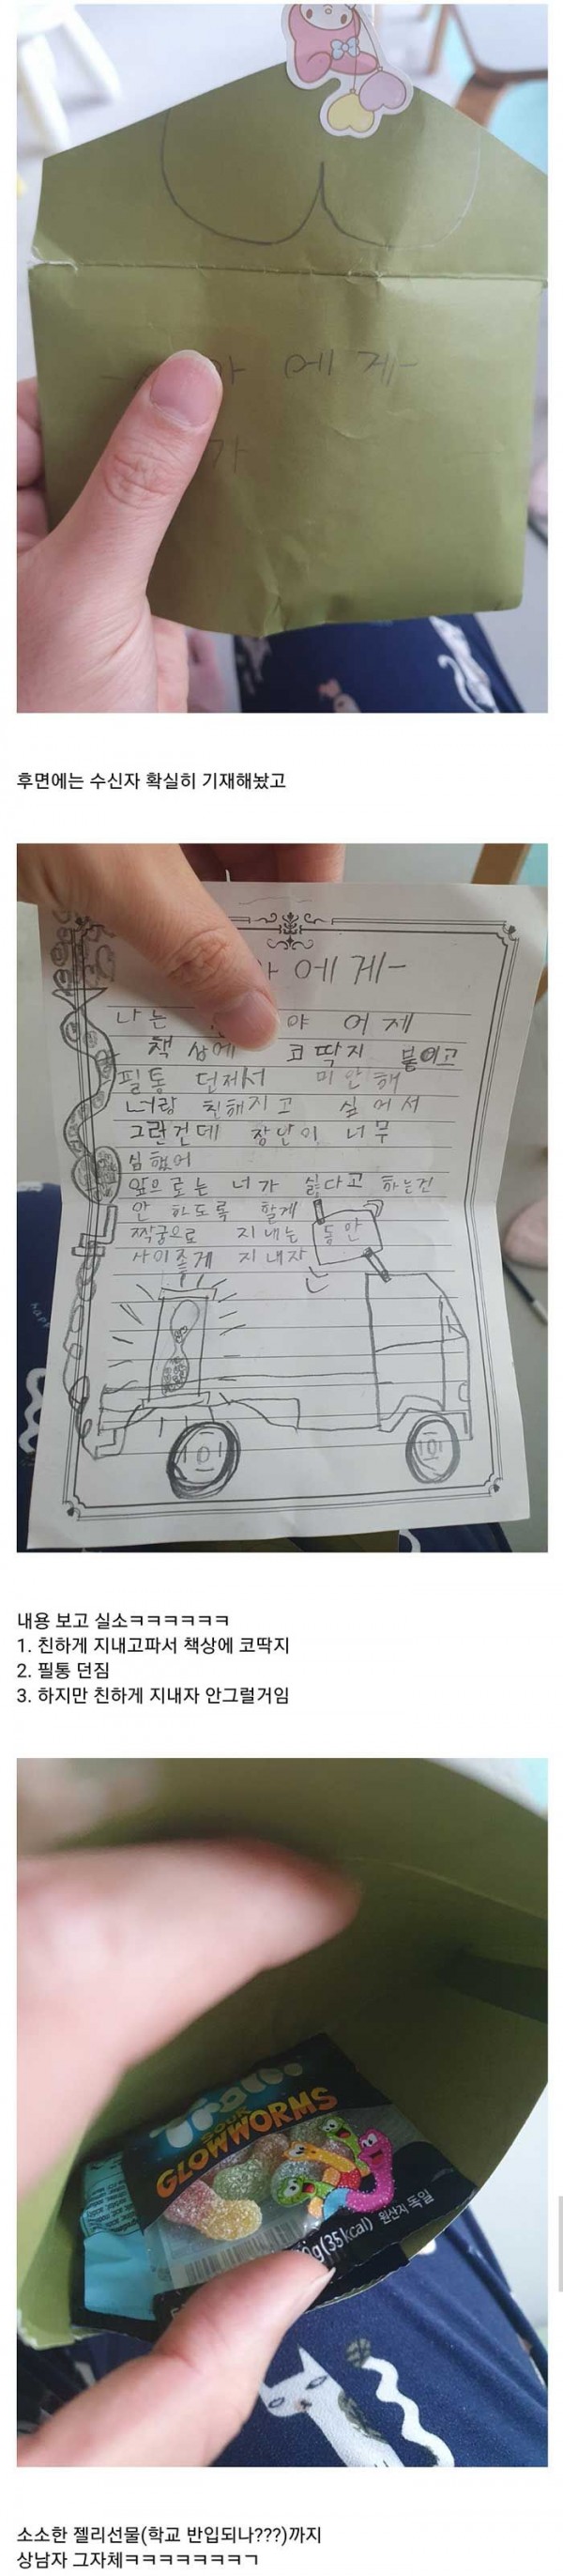 아 에게-
가
후면에는 수신자 확실히 기재해놨고
아 에게-
나는 야 어제
책상에 코딱지 붙이고
필통 던져서 미안해
너랑 친해지고 싶어서
그런건데 장난이 너무
심했어
앞으로는 너가 싫다고 하는건
안 하도록 할게
짝궁으로 지내는 동안
사이좋게 지내자
내용 보고 실소ㅋㅋㅋㅋㅋㅋ
1. 친하게 지내고파서 책상에 코딱지
2. 필통 던짐
3. 하지만 친하게 지내자 안그럴거임
Trolli
SOUR
GLOWWORMS
0g(35kcal) 원산지 독일
소소한 젤리선물(학교 반입되나???)까지
상남자 그자체ㅋㅋㅋㅋㅋㅋㅋㅋㄱ